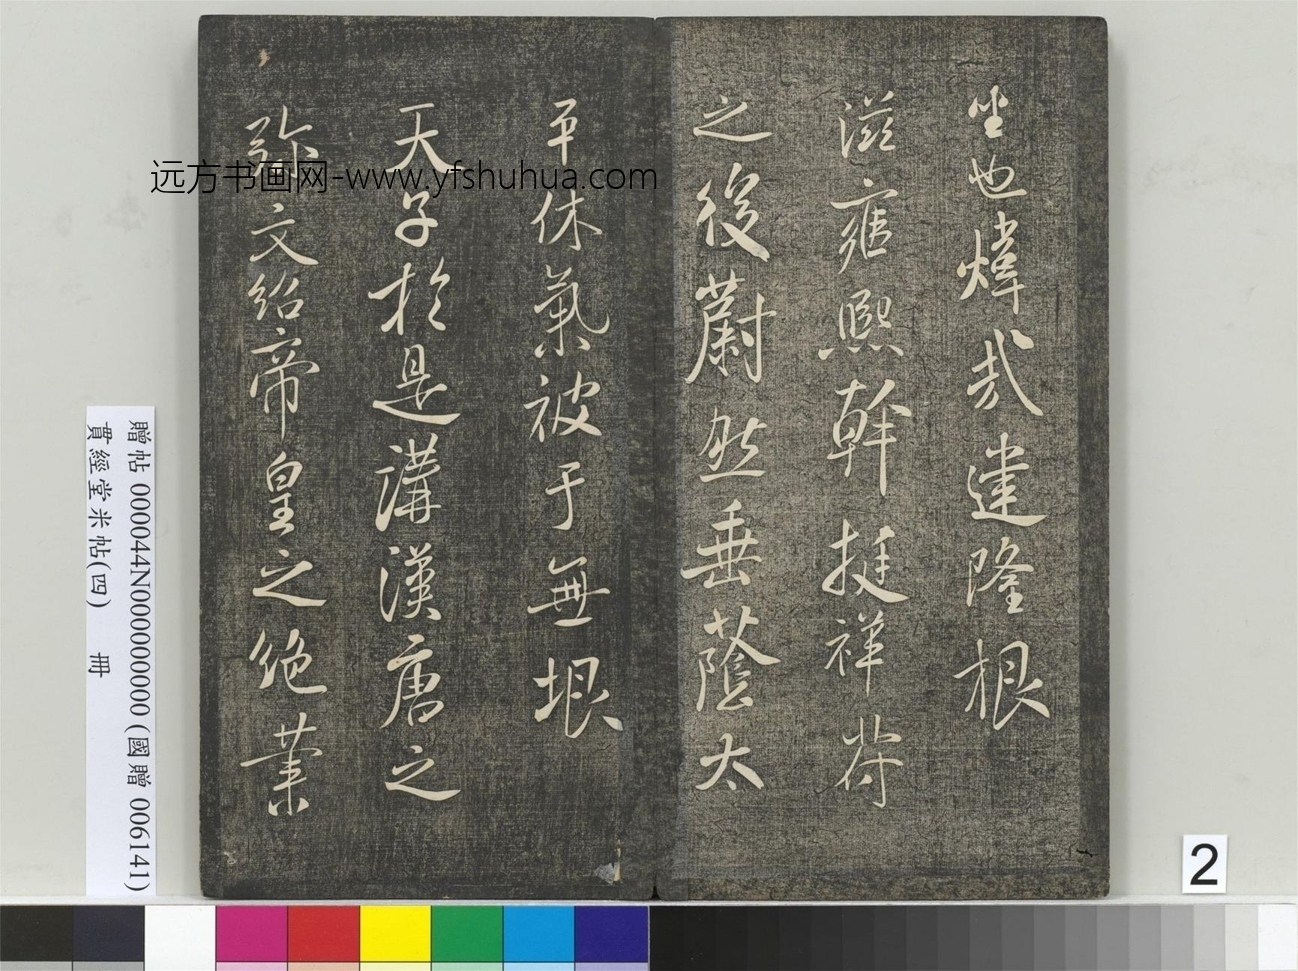 坐也煒哉建隆根
滋雍熙幹挺祥符
之後蔚然垂蔭太
平休氣被于無垠
天子於是講漢唐之
弥文紹帝皇之絕業
远方书画网-www.yfshuhua.com
贈帖 000044N000000000 (國贈 006141)
貫經堂米帖(四) 冊
2